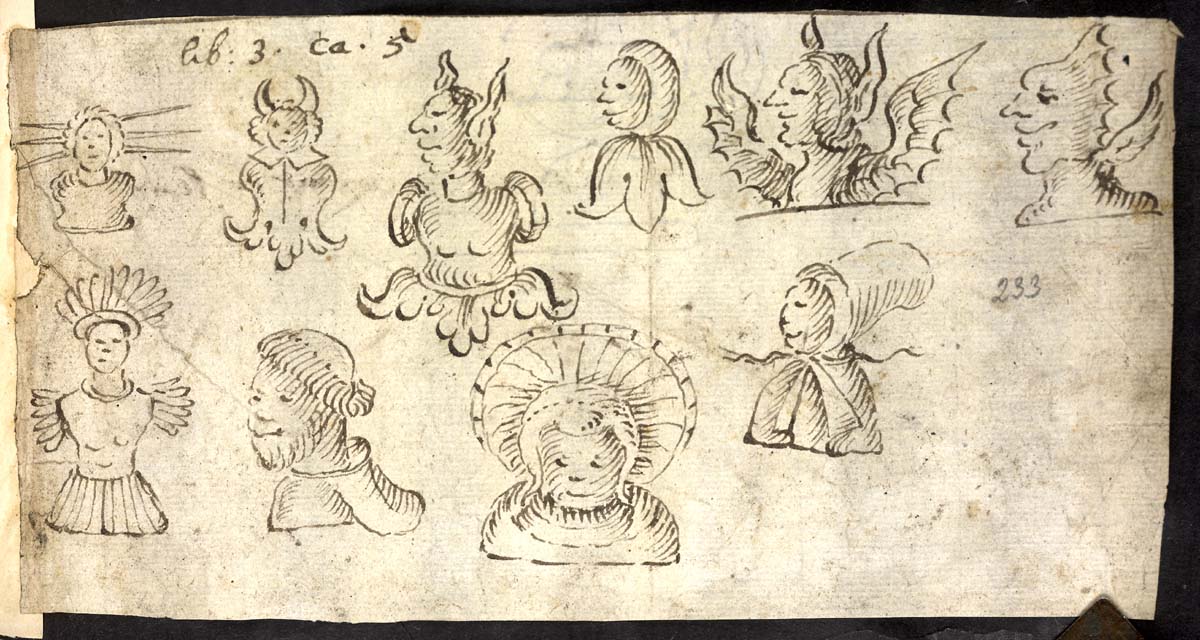 lib: 3. ca. 5
233